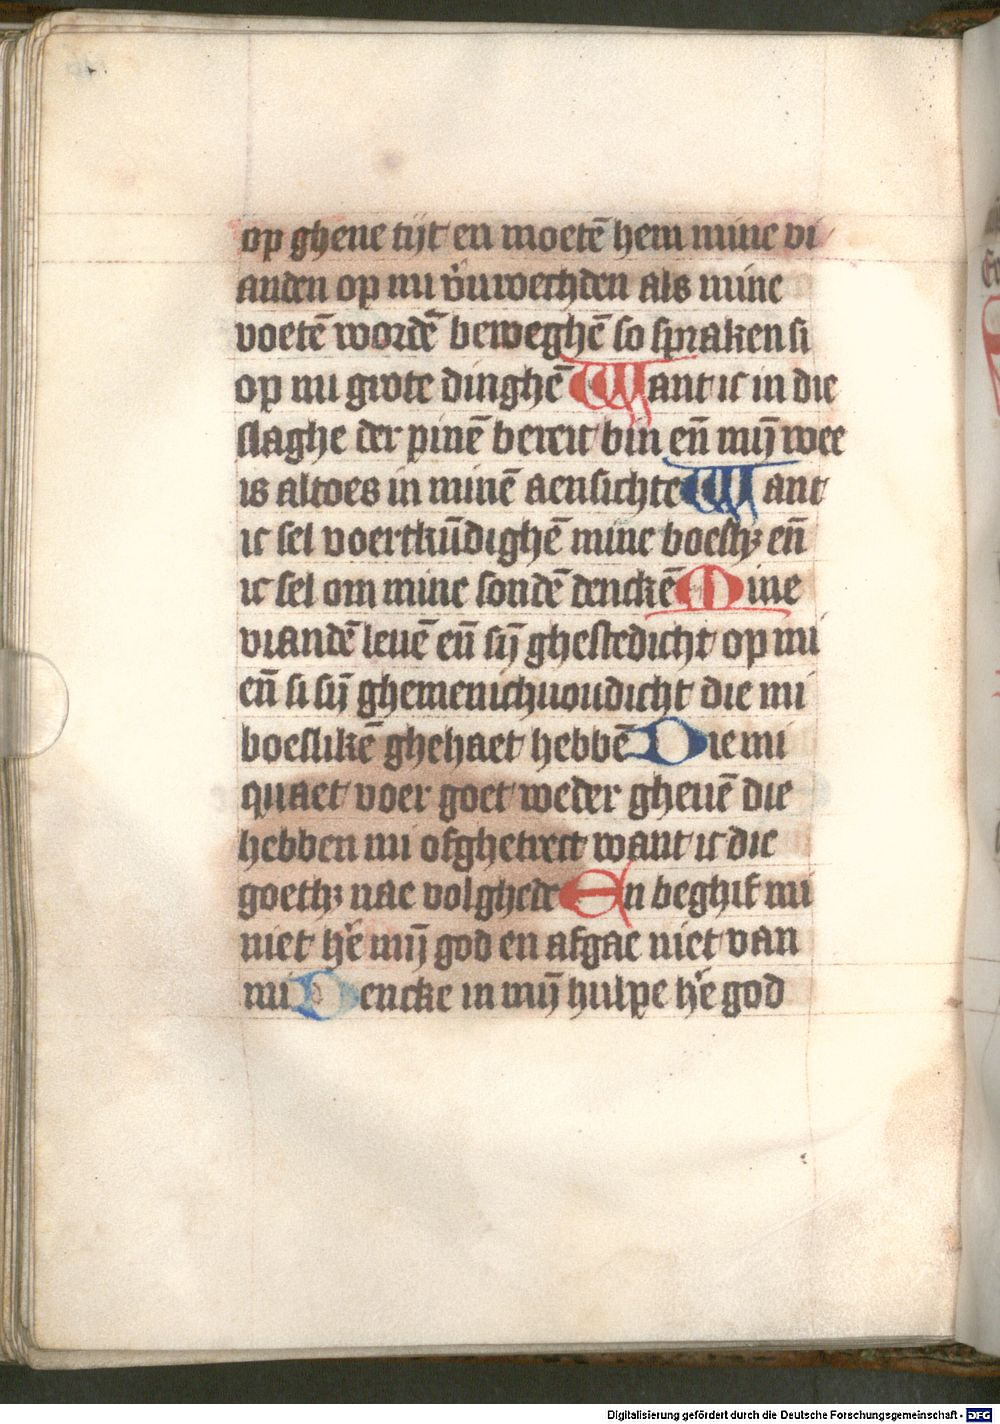 op ghene tijt en moetē hem mine vi
anden op mi v̉uwechden als mine
voetē wordē beweghē so spraken si
op mi grote dinghē Want ic in die
slaghe der pinē bereit bin eñ mij̄ wee
is altoes in minē aensichte Want
ic sel voertkūdighē mine boeshꝫ eñ
ic sel om mine sondē denckē Mine
viandē leuē eñ sij̄ ghestedicht op mi
eñ si sij̄ ghemenichuoudicht die mi
boeslikē ghehaet hebbē Die mi
quaet voer goet weder gheuē die
hebben mi ofghetrect want ic die
goethꝫ nae volghede En beghif mi
niet h̉e mij̄ god en afgae niet van
mi Dencke in mij̄ hulpe h̉e god
Digitalisierung gefördert durch die Deutsche Forschungsgemeinschaft - DFG